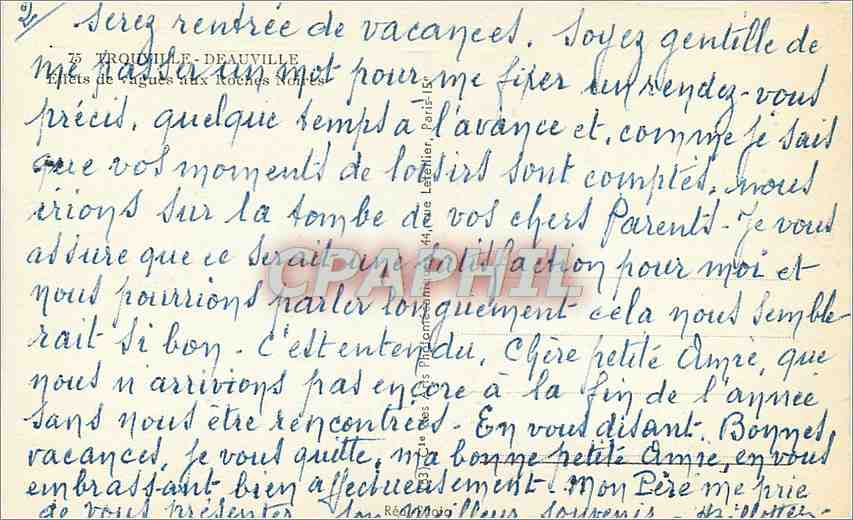 2/ serez rentrée de vacances. Soyez gentille de
75 TROUVILLE - DEAUVILLE
me passer un mot pour me fixer un rendez-vous
Effets de vagues aux Roches Noires
précis, quelque temps à l'avance et, comme je sais
que vos moments de loisirs sont comptés, nous
irions sur la tombe de vos chers Parents - Je vous
assure que ce serait une satisfaction pour moi et
nous pourrions parler longuement cela nous semble-
rait si bon - C'est entendu, Chère petite Amie, que
nous n'arrivions pas encore à la fin de l'année
sans nous être rencontrées - En vous disant, Bonnes
vacances, je vous quitte, ma bonne petite Amie, en vous
embrassant bien affectueusement - Mon Père me prie
de vous présenter son meilleur souvenir -
44, rue Letellier, Paris-15e
CPAPHIL